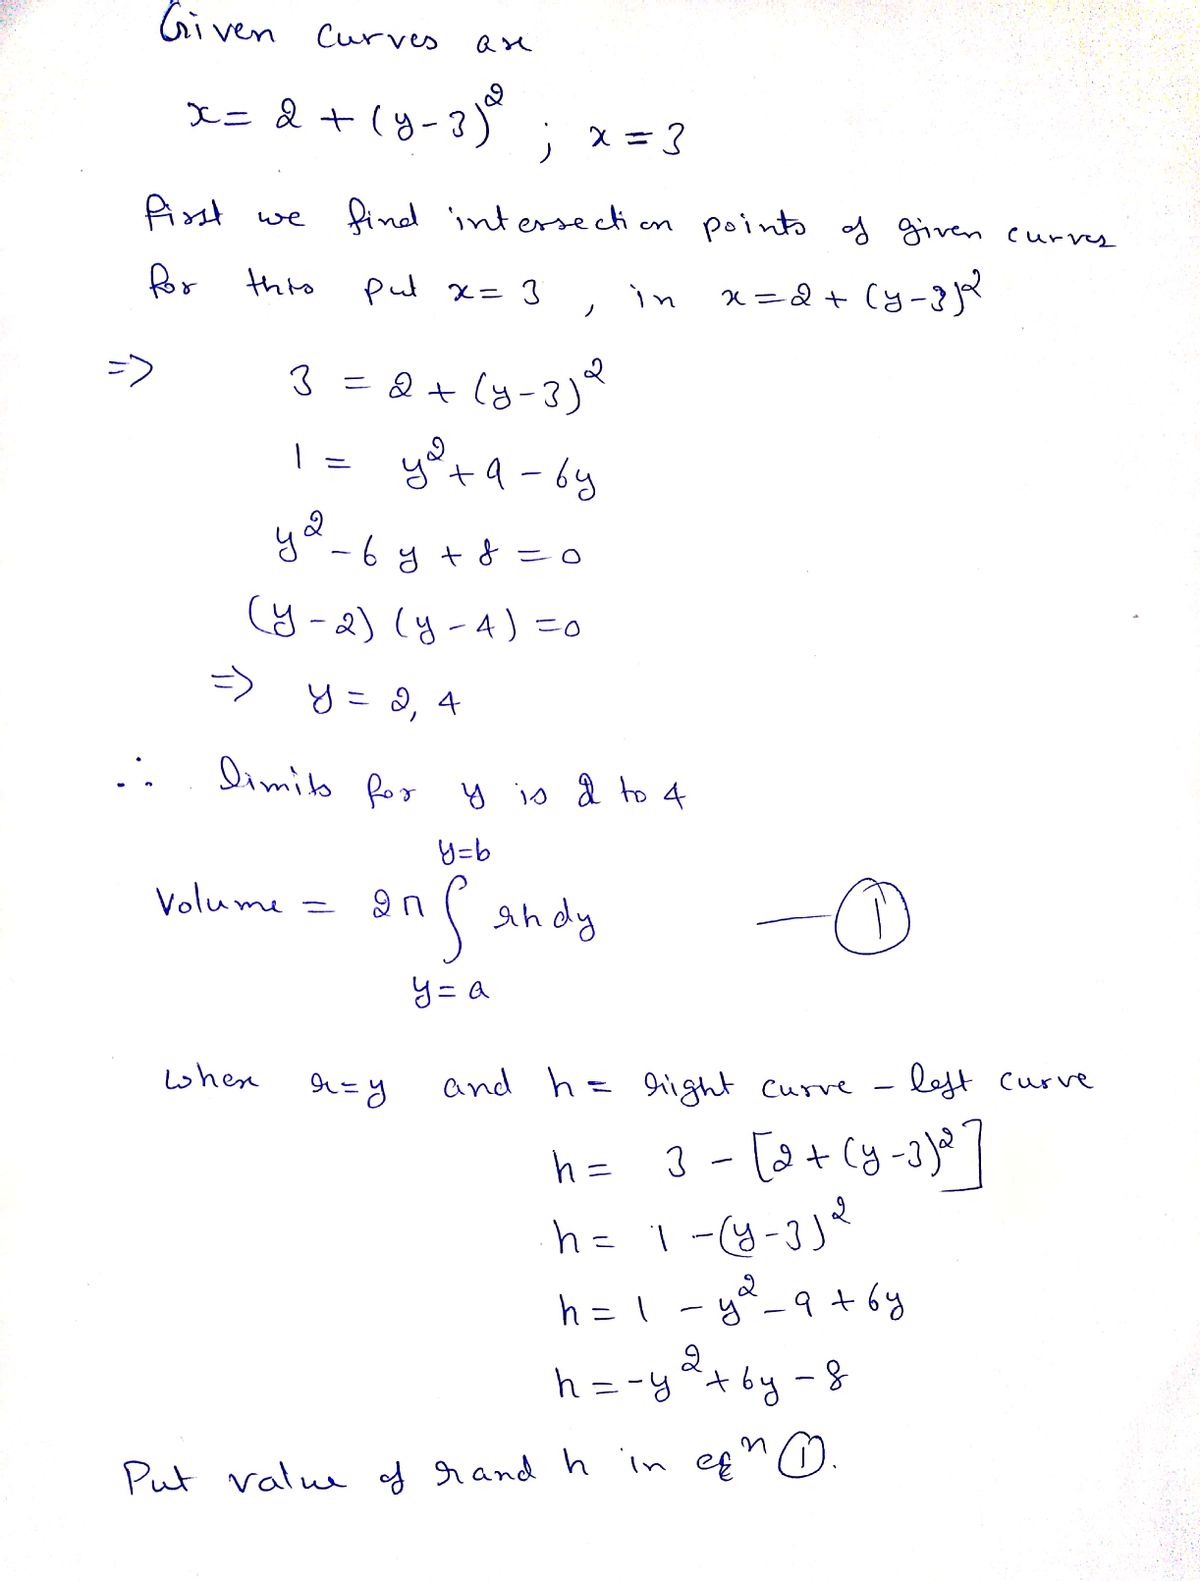 Given curves are
x = 2 + (y-3)² ; x = 3
first we find intersection points of given curves
for this put x = 3 , in x = 2 + (y-3)²
=> 3 = 2 + (y-3)²
1 = y² + 9 - 6y
y² - 6y + 8 = 0
(y-2) (y-4) = 0
=> y = 2, 4
∴ limits for y is 2 to 4
y=b
Volume = 2π ∫ rh dy — ①
y=a
where r=y and h = right curve - left curve
h = 3 - [2 + (y-3)²]
h = 1 - (y-3)²
h = 1 - y² - 9 + 6y
h = -y² + 6y - 8
Put value of r and h in eqⁿ ①.